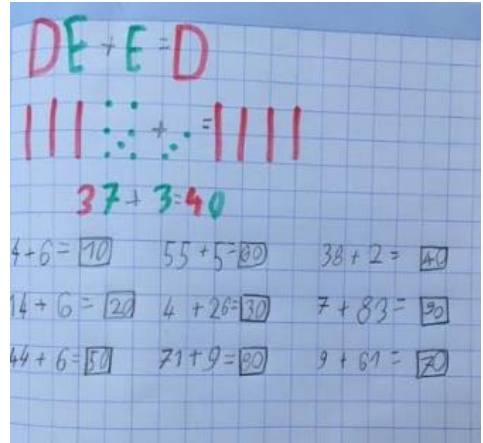 DE + E = D
+ =
37 + 3 = 40
4 + 6 = 10 55 + 5 = 60 38 + 2 = 40
14 + 6 = 20 4 + 26 = 30 7 + 83 = 90
44 + 6 = 50 71 + 9 = 80 9 + 61 = 70